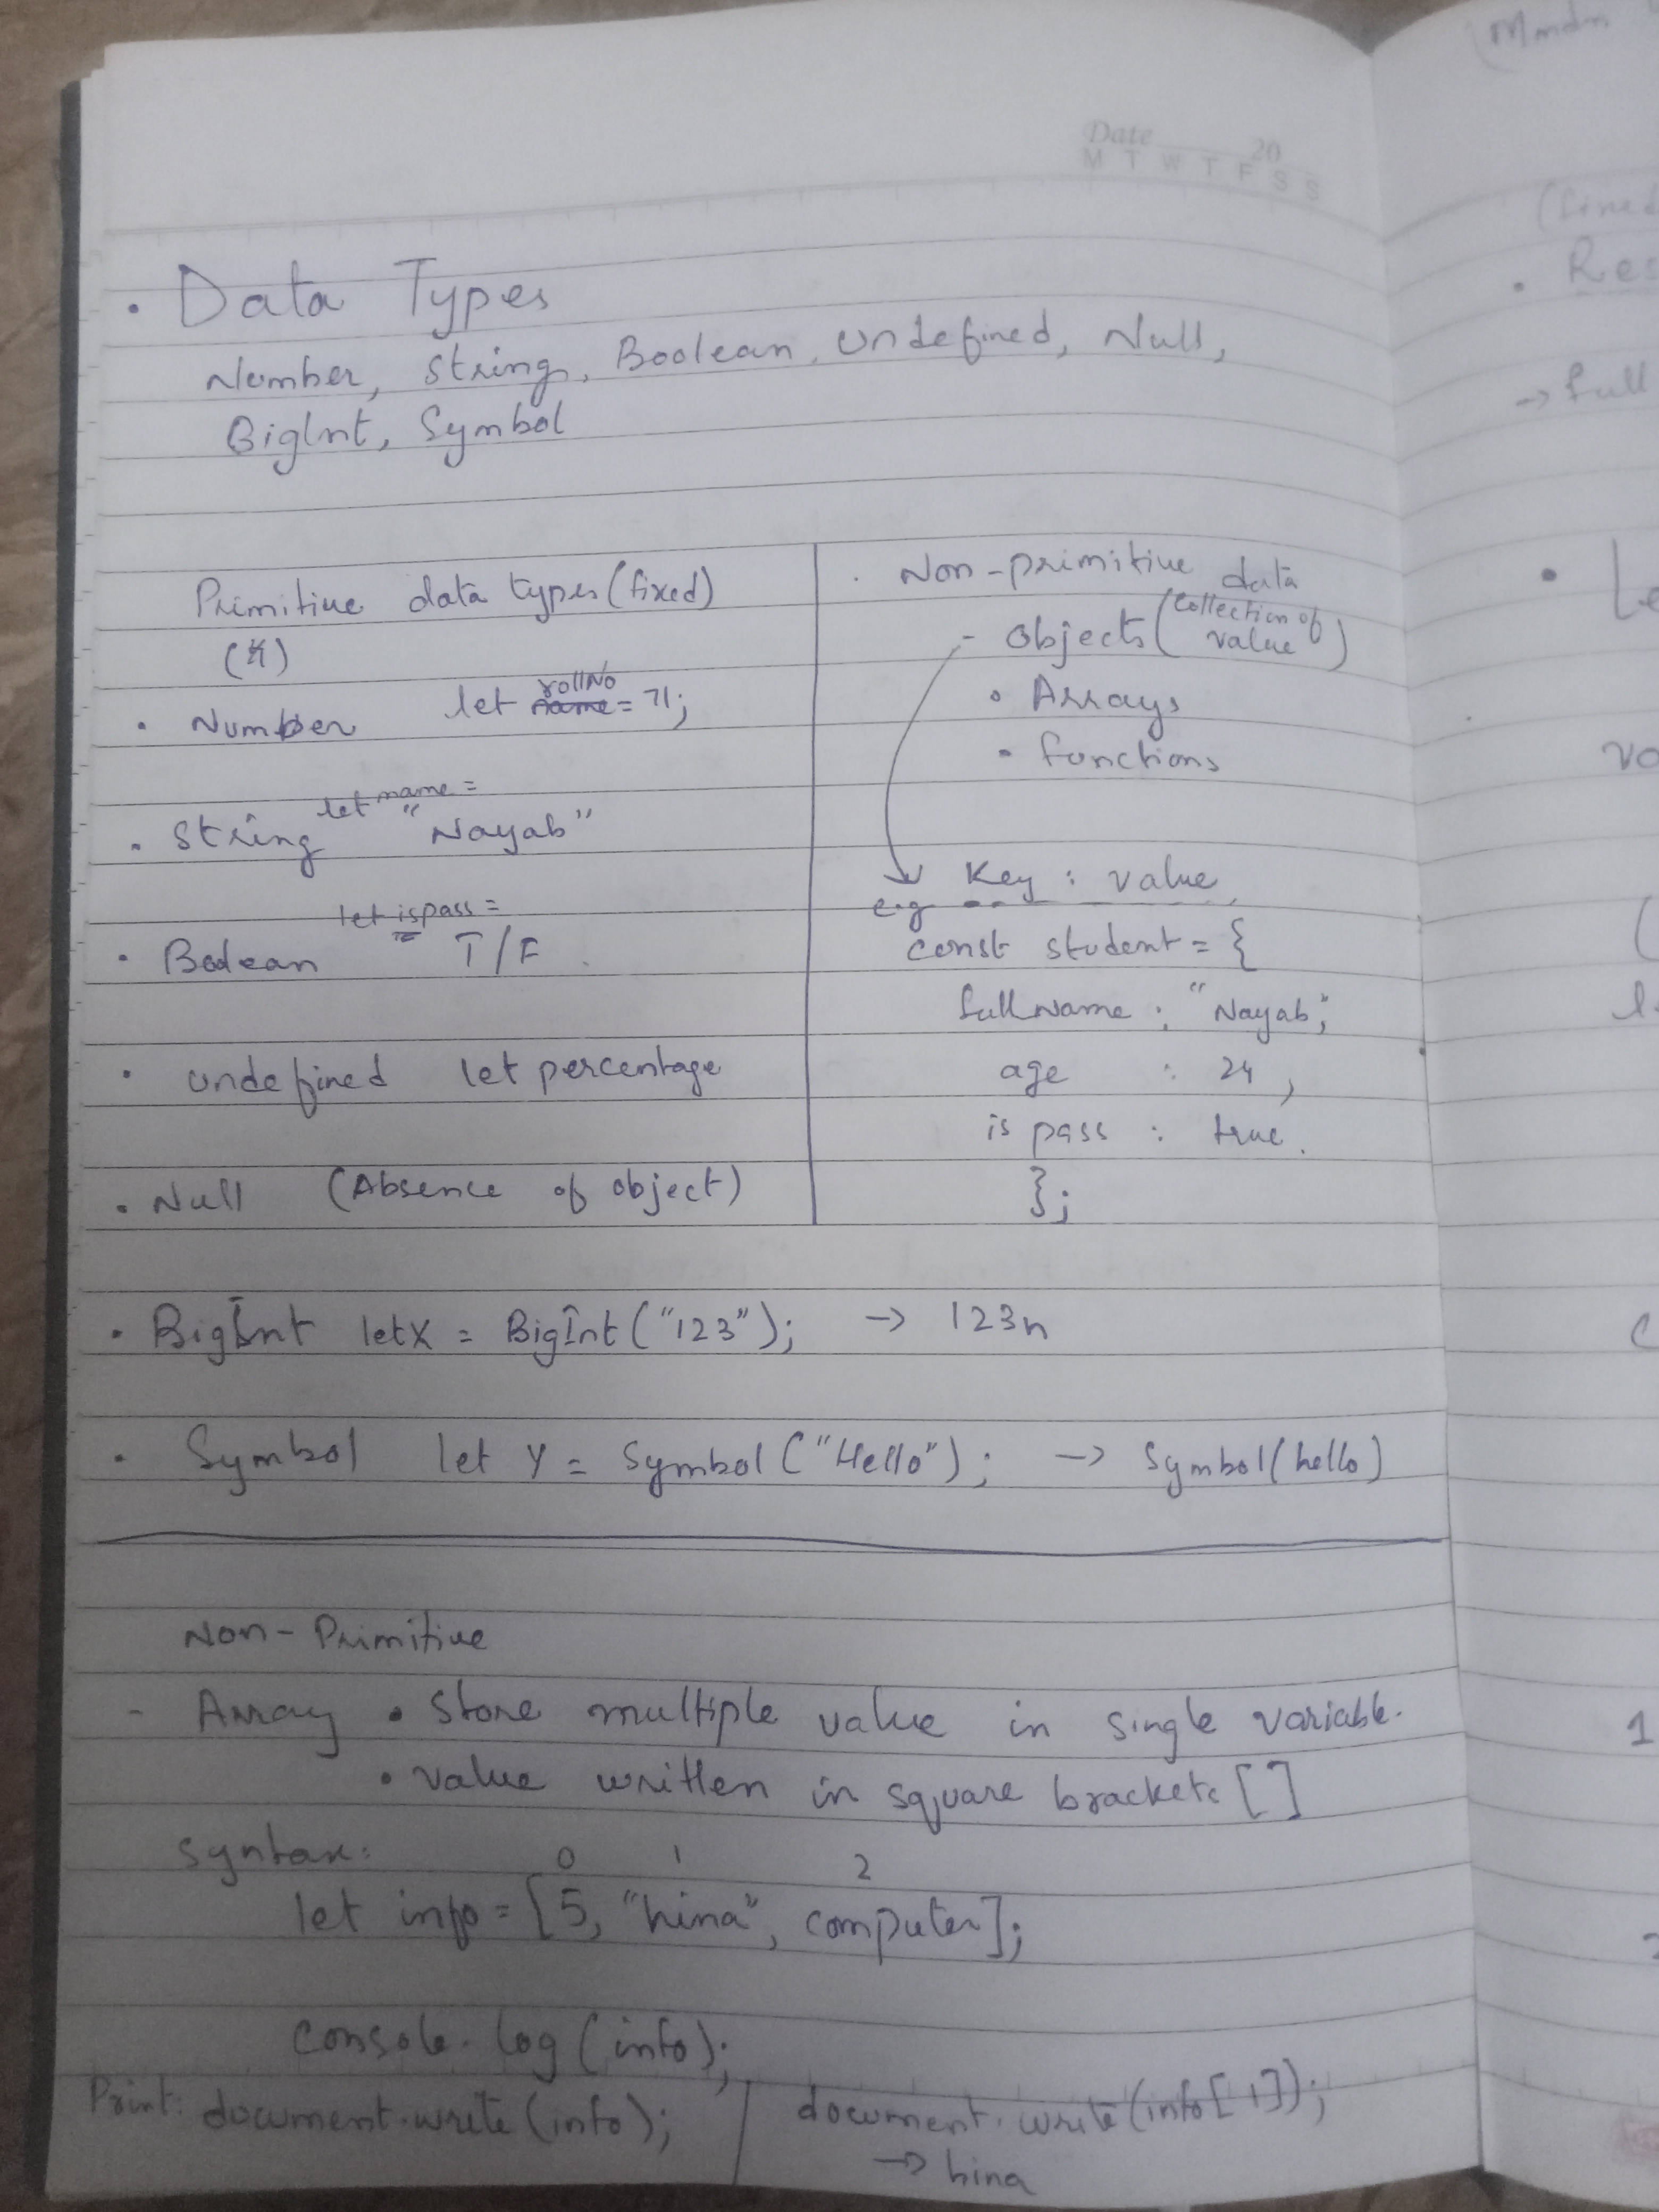 Date 20
M T W T F S S
• Data Types
Number, String, Boolean, undefined, Null,
BigInt, Symbol
Primitive data types (fixed)
• Number let rollNo = 71;
• String let name = "Nayab"
• Boolean let ispass = T/F
• undefined let percentage
• Null (Absence of object)
• Non-primitive data
- Objects (Collection of value)
• Arrays
• functions
Key : value
e.g
const student = {
fullname : "Nayab",
age : 24,
is pass : true.
};
• BigInt let X = BigInt("123"); → 123n
• Symbol let Y = Symbol ("Hello"); → Symbol(hello)
Non-Primitive
- Array • Store multiple value in single variable.
• value written in square brackets []
Syntax:
0 1 2
let info = [5, "hina", computer];
console.log(info);
Print: document.write(info);
document.write(info[1]);
→ hina
Res
→ full
1